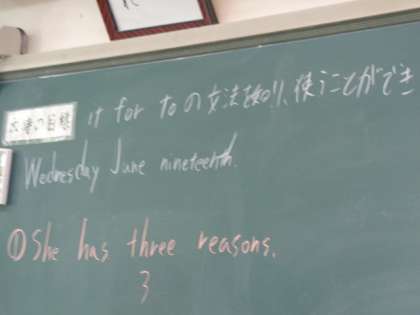 本時の目標 it for to の文法を知り、使うことができ
Wednesday June nineteenth.
① She has three reasons.
3